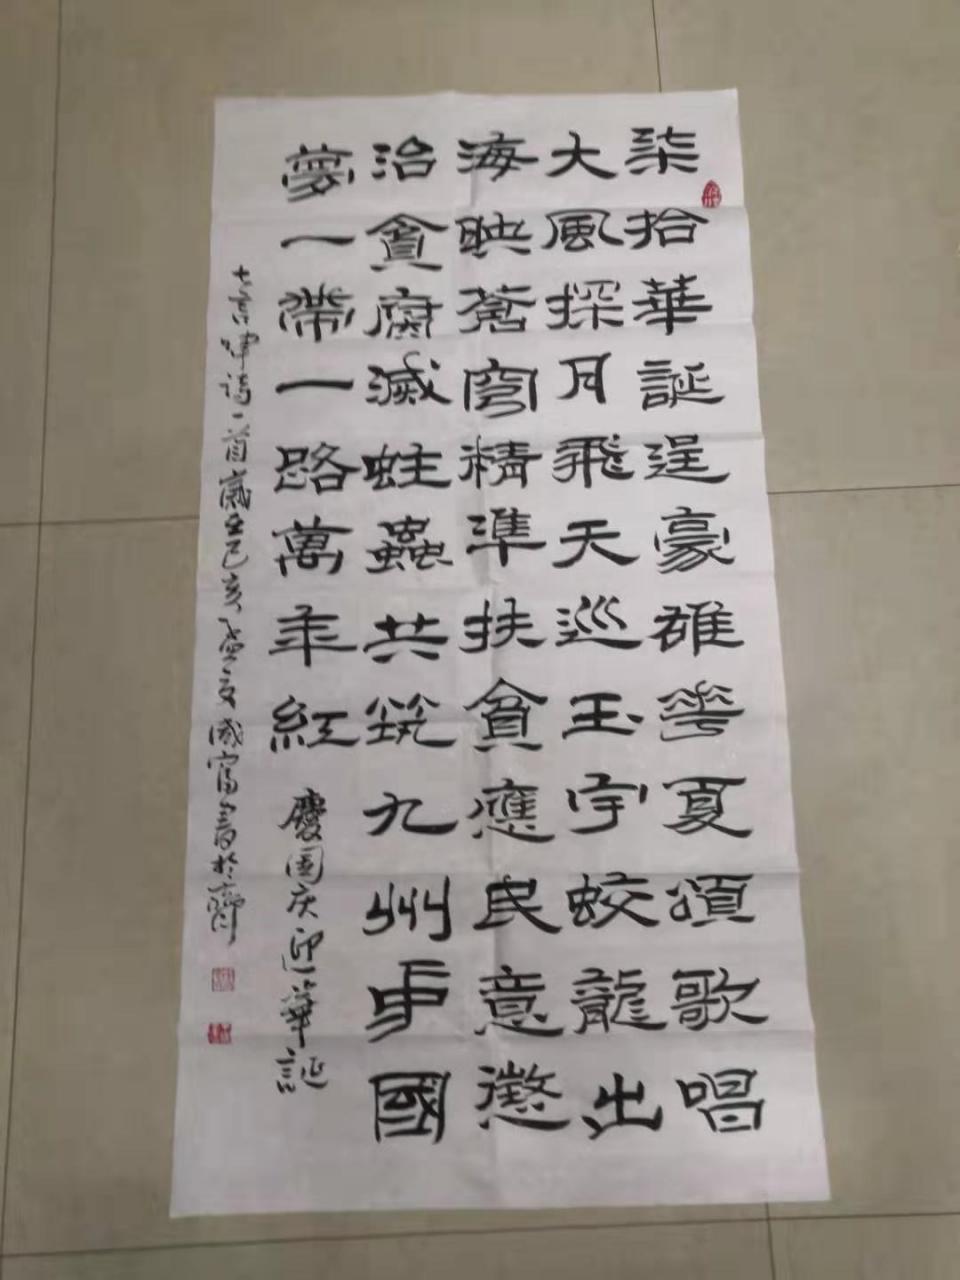 柒拾華誕逞豪雄華夏頌歌唱
大風探月飛天巡玉宇蛟龍出
海映蒼穹精準扶貧應民意懲
治貪腐滅蛀蟲共筑九州中國
夢一帶一路萬年紅
慶國庆迎華誕
七言律诗一首歲在己亥夏成富書於